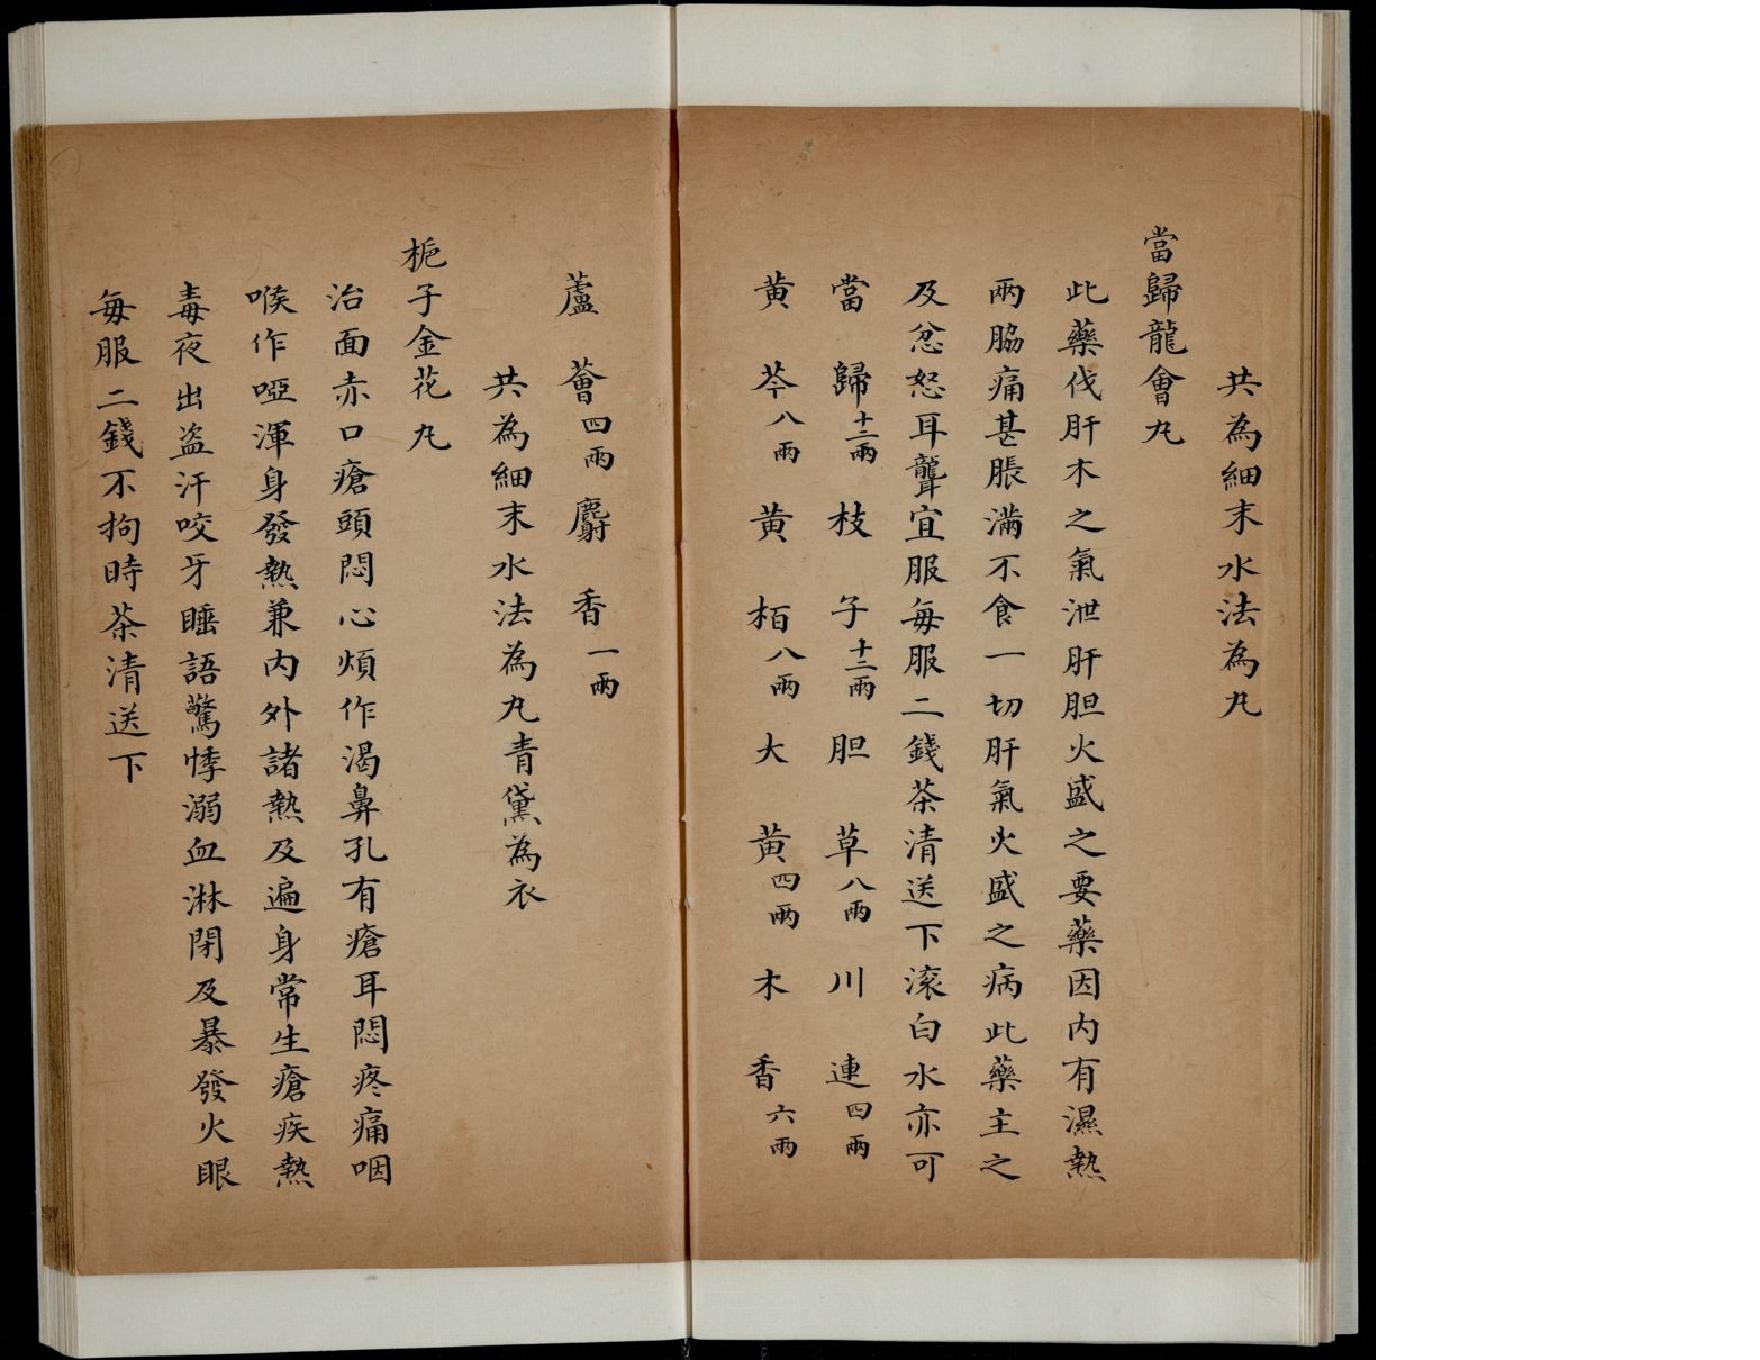 共為細末水法為丸
當歸龍會丸
此藥伐肝木之氣泄肝胆火盛之要藥因內有濕熱
兩脇痛甚脹滿不食一切肝氣火盛之病此藥主之
及忿怒耳聾宜服每服二錢茶清送下滚白水亦可
當歸十二兩枝子十二兩胆草八兩川連四兩
黃芩八兩黃栢八兩大黃四兩木香六兩
蘆薈四兩麝香一兩
共為細末水法為丸青黛為衣
梔子金花丸
治面赤口瘡頭悶心煩作渴鼻孔有瘡耳悶疼痛咽
喉作啞渾身發熱兼內外諸熱及遍身常生瘡疾熱
毒夜出盗汗咬牙睡語驚悸溺血淋閉及暴發火眼
每服二錢不拘時茶清送下